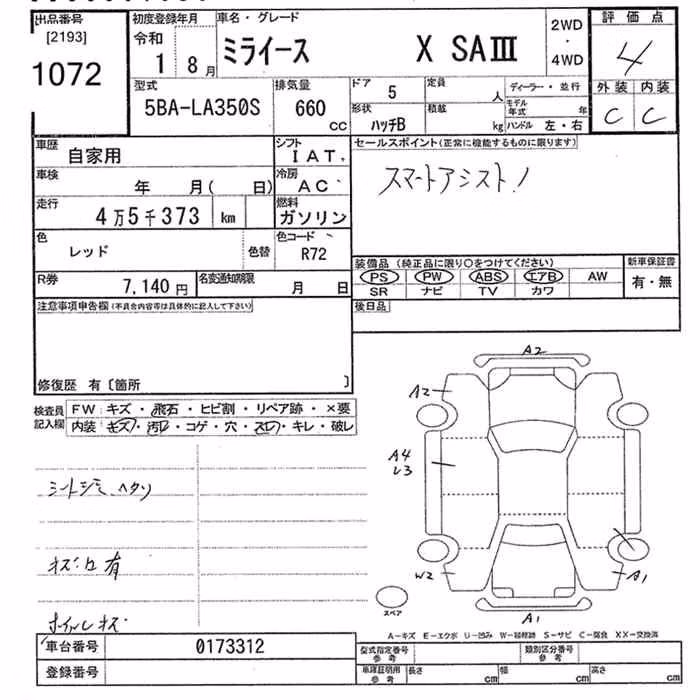 出品番号 初度登録年月 車名・グレード 評価点
[2193] 令和 2WD
1072 1 8月 ミライース X SAⅢ ・ 4
4WD
型式 排気量 ドア 5 定員 人 ディーラー・並行 外装 内装
5BA-LA350S 660 CC 形状 ハッチB 積載 kg モデル年式 年 C C
ハンドル 左・右
車歴 自家用 シフト IAT セールスポイント(正常に機能するものに限ります)
車検 年 月( 日) 冷房 AC スマートアシスト!
走行 4万5千373 km 燃料 ガソリン
色 レッド 色替 色コード R72
装備品 (純正品に限り○をつけてください) 新車保証書
R券 7,140円 名変通知期限 月 日 PS PW ABS エアB AW 有・無
SR ナビ TV カワ
注意事項申告欄(不具合内容等は具体的に記入して下さい) 後日品
修復歴 有〔箇所 〕
検査員 FW:キズ・飛石・ヒビ割・リペア跡・×要
記入欄 内装:キズ・汚レ・コゲ・穴・スレ・キレ・破レ
A2
A2
A4
シートシミ、ヘタリ
キズ凹有
W2 A1
スペア
A1
ホイールキズ
A-キズ E-エクボ U-凹み W-補修跡 S-サビ C-腐食 XX-交換済
車台番号 0173312 型式指定番号 参考 類別区分番号 参考
登録番号 車庫証明用 参考 長さ cm 幅 cm 高さ cm